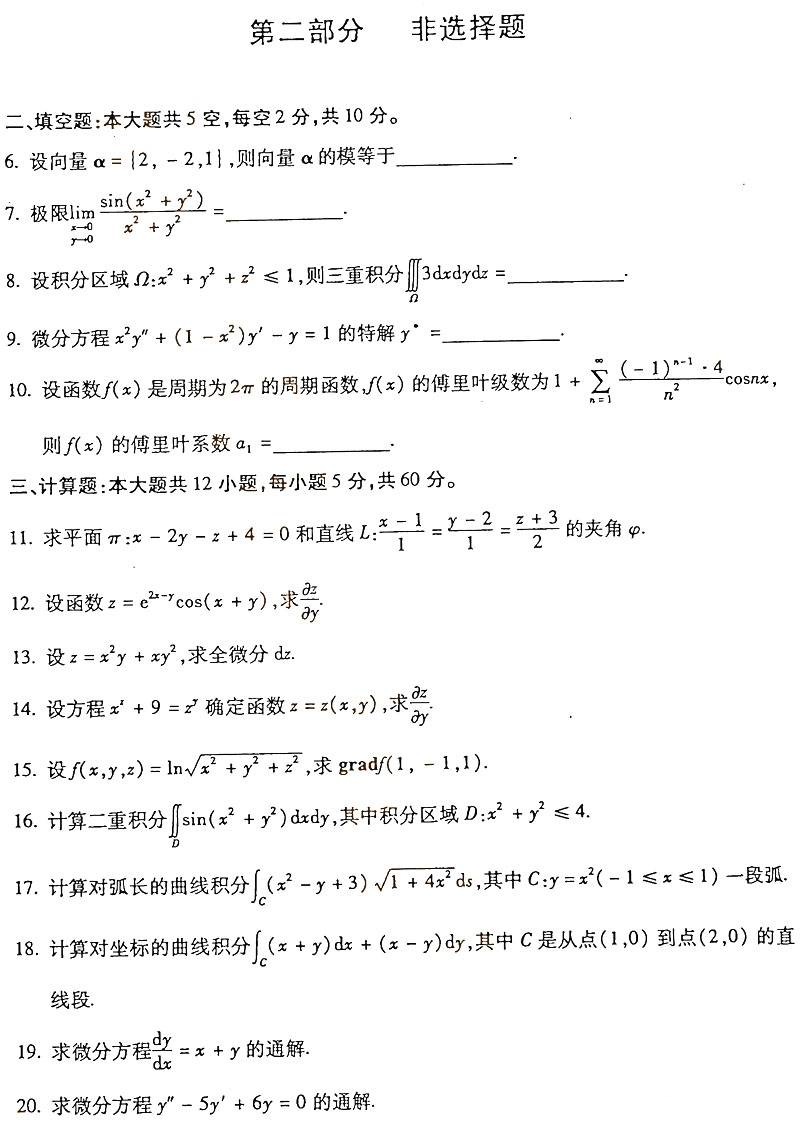 第二部分 非选择题
二、填空题:本大题共5空,每空2分,共10分。
6. 设向量 α = {2, − 2,1},则向量 α 的模等于____________.
7. 极限lim_{x→0 y→0} sin(x² + y²)/(x² + y²) = ____________.
8. 设积分区域 Ω:x² + y² + z² ≤ 1,则三重积分∭_Ω 3dxdydz = ____________.
9. 微分方程 x²y″ + (1 − x²)y′ − y = 1 的特解 y* = ____________.
10. 设函数f(x) 是周期为2π 的周期函数,f(x) 的傅里叶级数为 1 + ∑_{n=1}^{∞} (−1)^{n−1}·4/n² cosnx,
则 f(x) 的傅里叶系数 a₁ = ____________.
三、计算题:本大题共 12 小题,每小题 5 分,共 60 分。
11. 求平面 π:x − 2y − z + 4 = 0 和直线 L:(x − 1)/1 = (y − 2)/1 = (z + 3)/2 的夹角 φ.
12. 设函数 z = e^{2x−y}cos(x + y),求∂z/∂y.
13. 设 z = x²y + xy²,求全微分 dz.
14. 设方程 x^z + 9 = z^y 确定函数 z = z(x,y),求∂z/∂y.
15. 设f(x,y,z) = ln√(x² + y² + z²),求 gradf(1, − 1,1).
16. 计算二重积分∬_D sin(x² + y²)dxdy,其中积分区域 D:x² + y² ≤ 4.
17. 计算对弧长的曲线积分∫_C (x² − y + 3) √(1 + 4x²) ds,其中 C:y = x²( − 1 ≤ x ≤ 1) 一段弧.
18. 计算对坐标的曲线积分∫_C (x + y)dx + (x − y)dy,其中 C 是从点(1,0) 到点(2,0) 的直
线段.
19. 求微分方程dy/dx = x + y 的通解.
20. 求微分方程 y″ − 5y′ + 6y = 0 的通解.